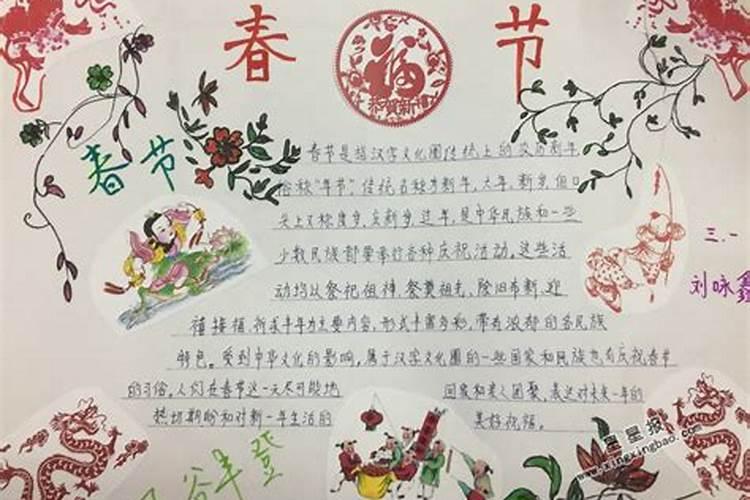 春节
恭贺新禧
春节
春节是指汉字文化圈传统上的农历新年,
俗称"年节",传统名称为新年、大年、新岁,但口
头上又称度岁、庆新岁、过年,是中华民族和一些
少数民族都要举行各种庆祝活动。这些活
动均以祭祀祖神、祭奠祖先、除旧布新、迎
禧接福、祈求丰年为主要内容,形式丰富多彩,带有浓郁的各民族
特色。受到中华文化的影响,属于汉字文化圈的一些国家和民族也有庆祝春节
的习俗,人们在春节这一天尽可能地 回家和亲人团聚,表达对未来一年的
热切期盼和对新一年生活的 美好祝福。
三.一
刘咏鑫
谷丰登
星星报
www.xingxingbao.com